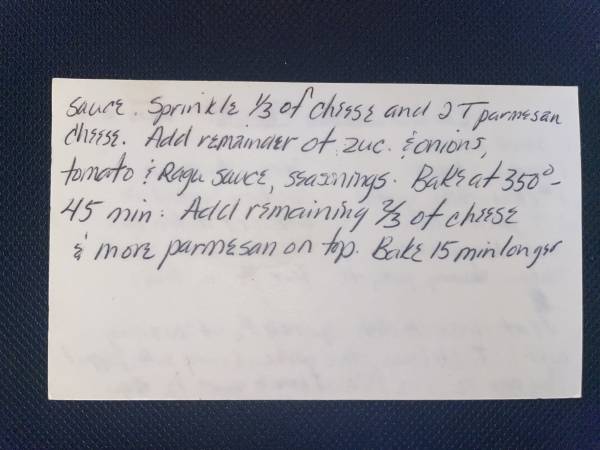 sauce. Sprinkle 1/3 of cheese and 2 T parmesan
cheese. Add remainder of zuc. & onions,
tomato & Ragu sauce, seasonings. Bake at 350° -
45 min. Add remaining 2/3 of cheese
& more parmesan on top. Bake 15 min longer